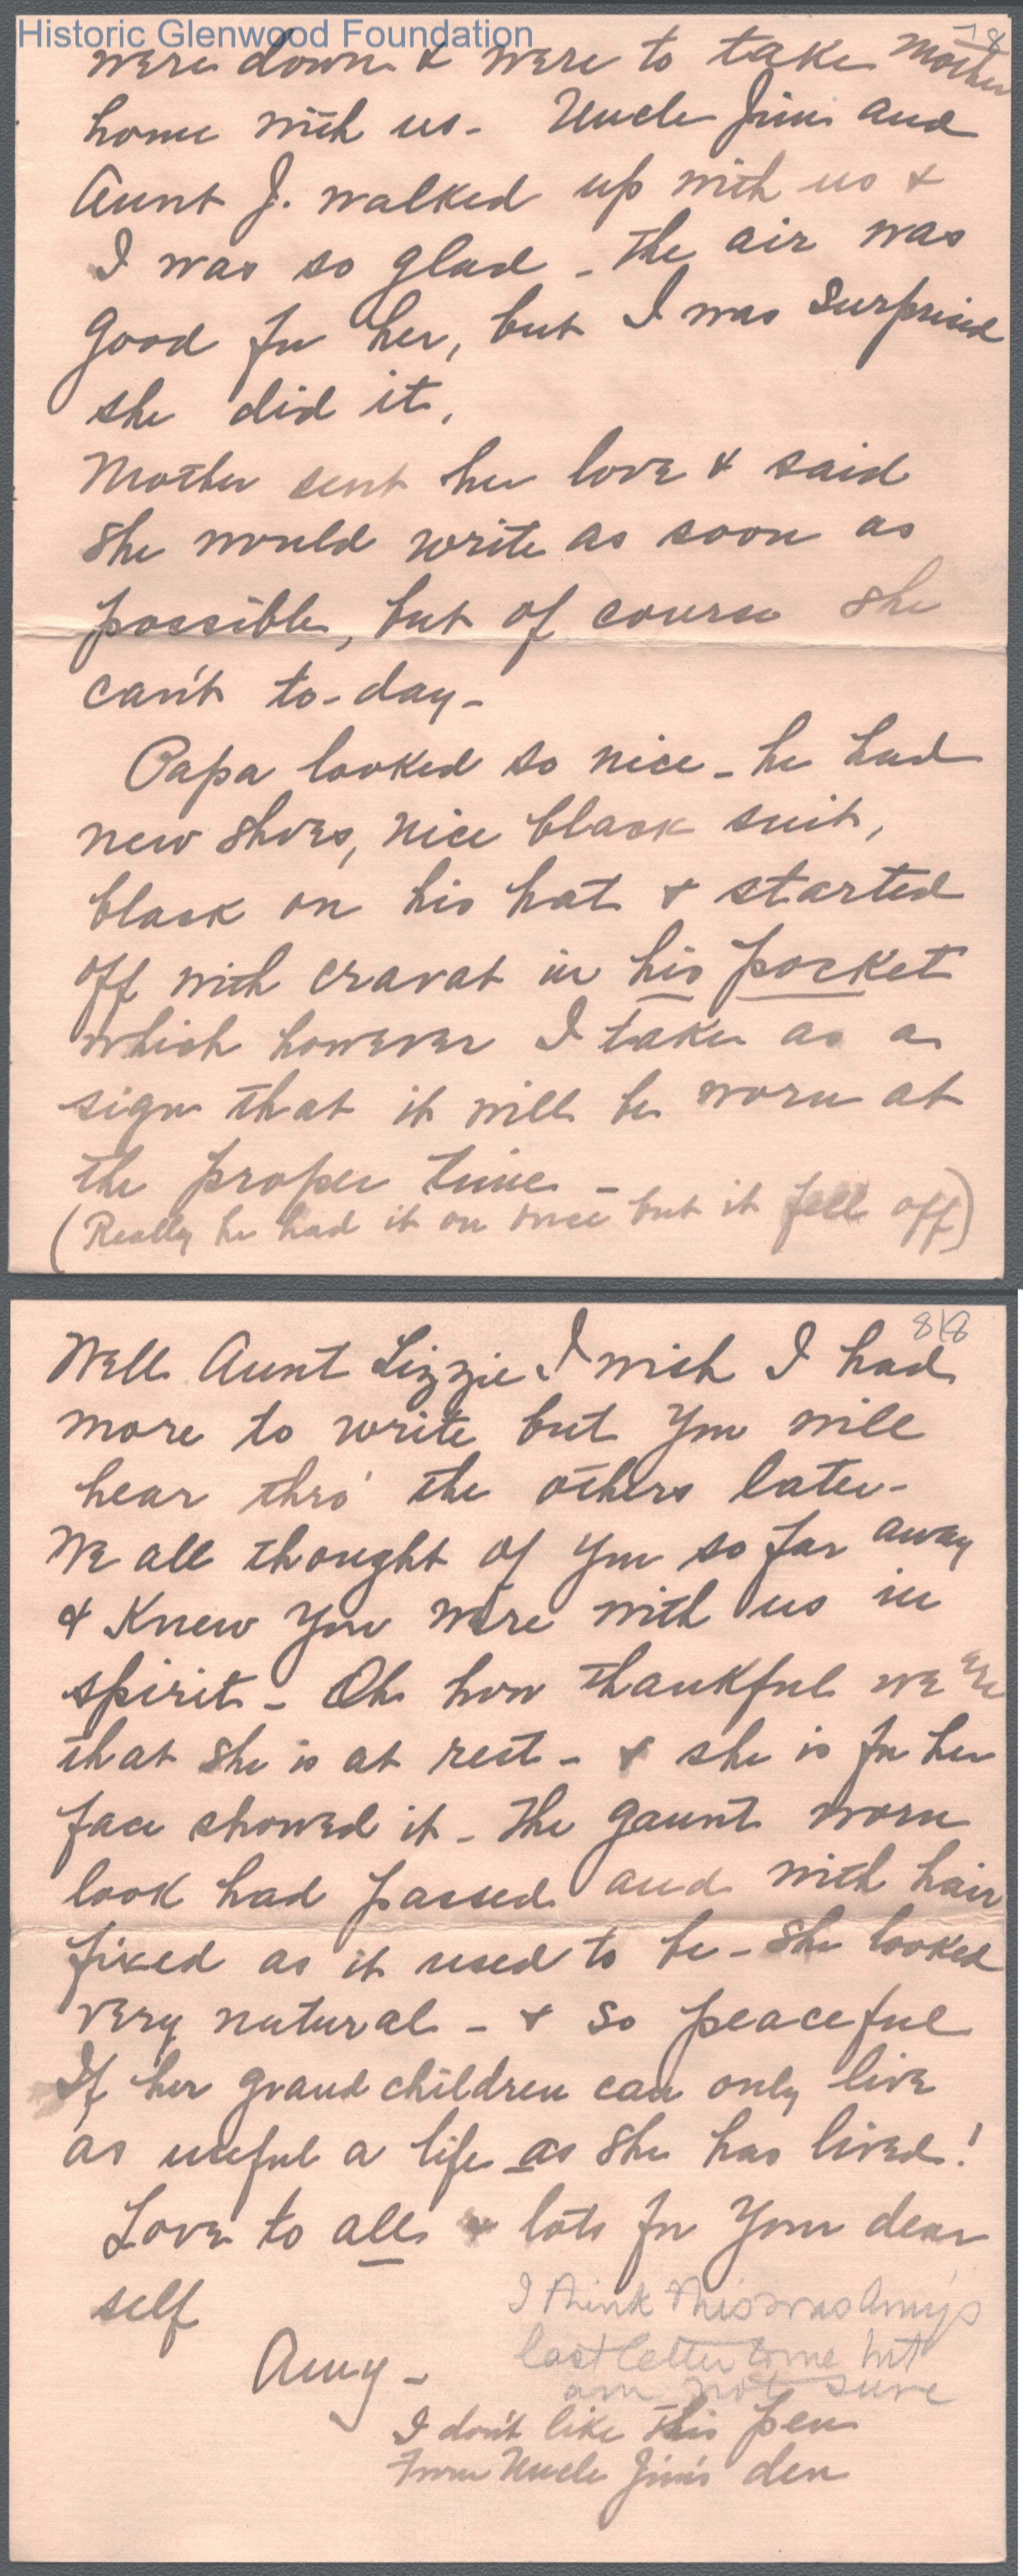 Historic Glenwood Foundation
7 8
were down & were to take Mother
home with us - Uncle Jim and
Aunt J. walked up with us &
I was so glad - the air was
good for her, but I was surprised
she did it.
Mother sent her love & said
she would write as soon as
possible, but of course she
can't to-day -
Papa looked so nice - he had
new shoes, nice black suit,
black on his hat & started
off with cravat in his pocket
which however I take as a
sign that it will be worn at
the proper time -
(Really he had it on once but it fell off)
8/8
Well Aunt Lizzie I wish I had
more to write but you will
hear thro' the others later -
We all thought of you so far away
& knew you were with us in
spirit - Oh how thankful we are
that she is at rest - & she is for her
face showed it - the gaunt worn
look had passed and with hair
fixed as it used to be - she looked
very natural - & so peaceful
If her grandchildren can only live
as useful a life as she has lived!
Love to all & lots for your dear
self
Amy -
I think this was Amy's
last letter to me but
am not sure
I don't like this pen
From Uncle Jim's den